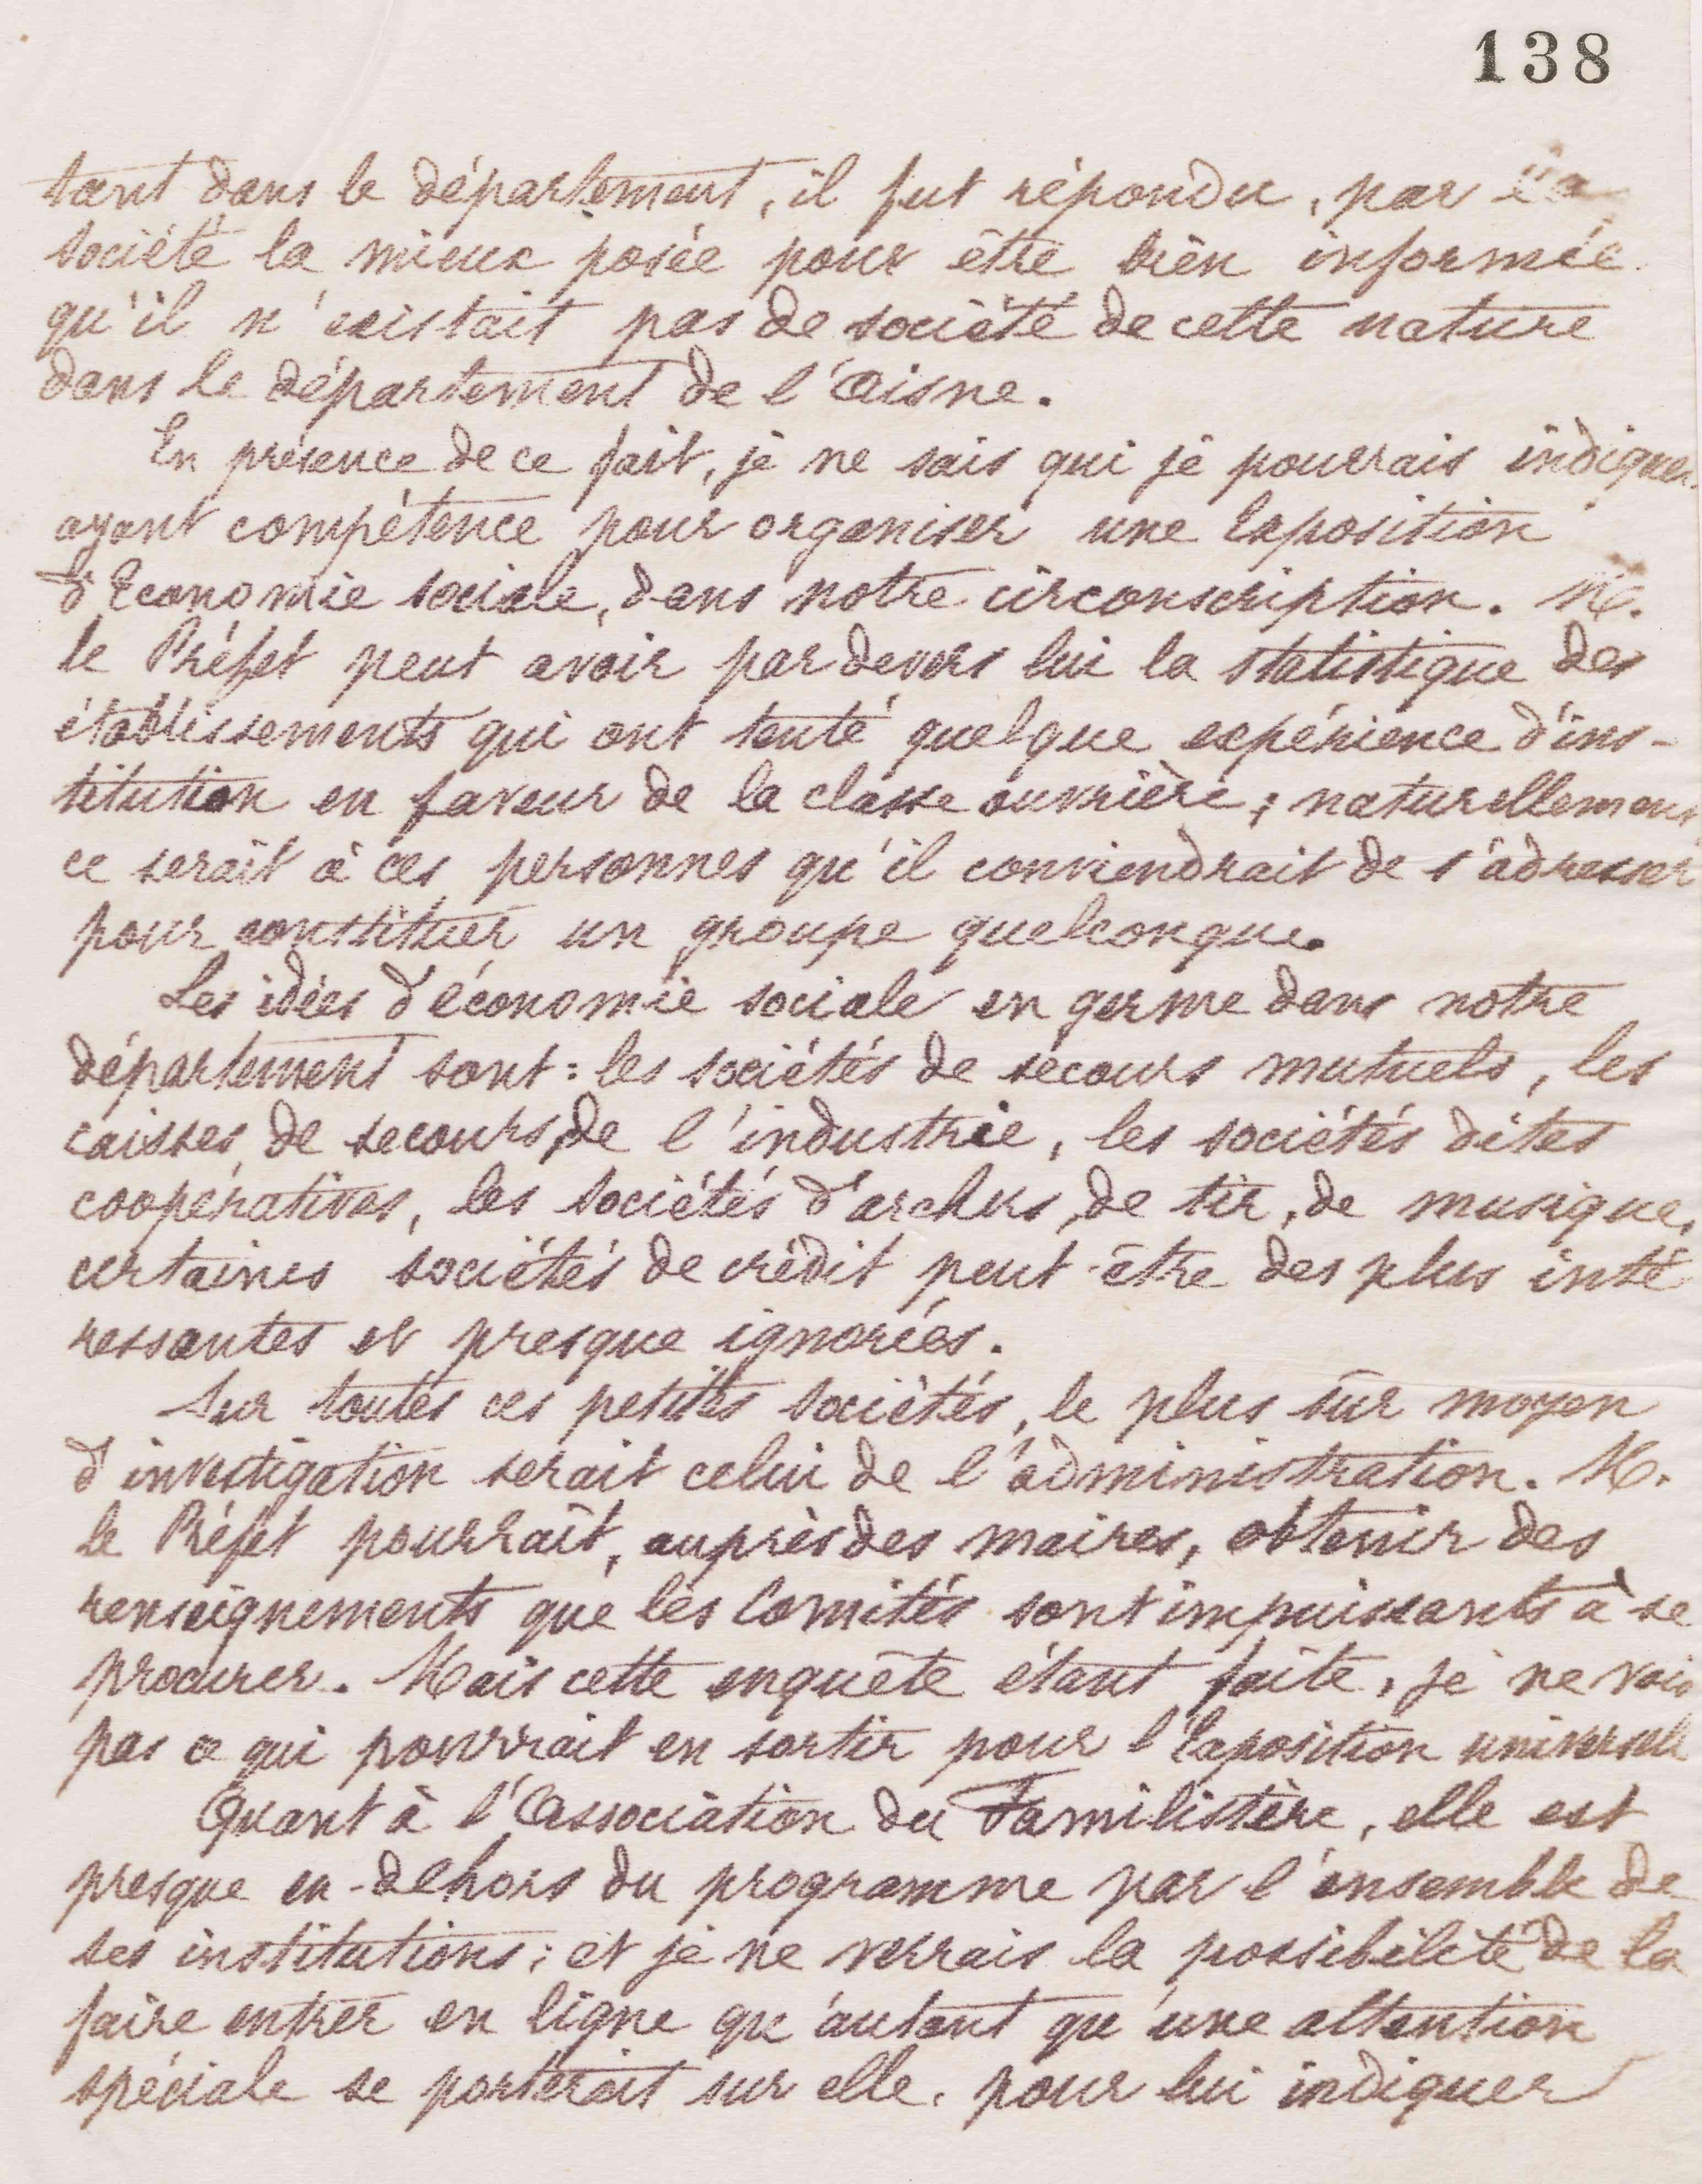 138
tant dans le département, il fut répondu, par la
société la mieux posée pour être bien informée
qu'il n'existait pas de société de cette nature
dans le département de l'Aisne.
En présence de ce fait, je ne sais qui je pourrais indiquer
ayant compétence pour organiser une Exposition
d'Economie sociale, dans notre circonscription. M.
le Préfet peut avoir par devers lui la statistique des
établissements qui ont tenté quelque expérience d'ins-
titution en faveur de la classe ouvrière; naturellement
ce serait à ces personnes qu'il conviendrait de s'adresser
pour constituer un groupe quelconque.
Les idées d'économie sociale en germe dans notre
département sont: les sociétés de secours mutuels, les
caisses de secours de l'industrie, les sociétés dites
coopératives, les sociétés d'archers, de tir, de musique,
certaines sociétés de crédit peut-être des plus inté
ressantes et presque ignorées.
Sur toutes ces petites sociétés, le plus sûr moyen
d'investigation serait celui de l'administration. M.
le Préfet pourrait, auprès des maires, obtenir des
renseignements que les Comités sont impuissants à se
procurer. Mais cette enquête étant faite, je ne vois
pas ce qui pourrait en sortir pour l'Exposition universelle
Quant à l'Association du Familistère, elle est
presque en-dehors du programme par l'ensemble de
ses institutions; et je ne verrais la possibilité de la
faire entrer en ligne qu'autant qu'une attention
spéciale se porterait sur elle, pour lui indiquer